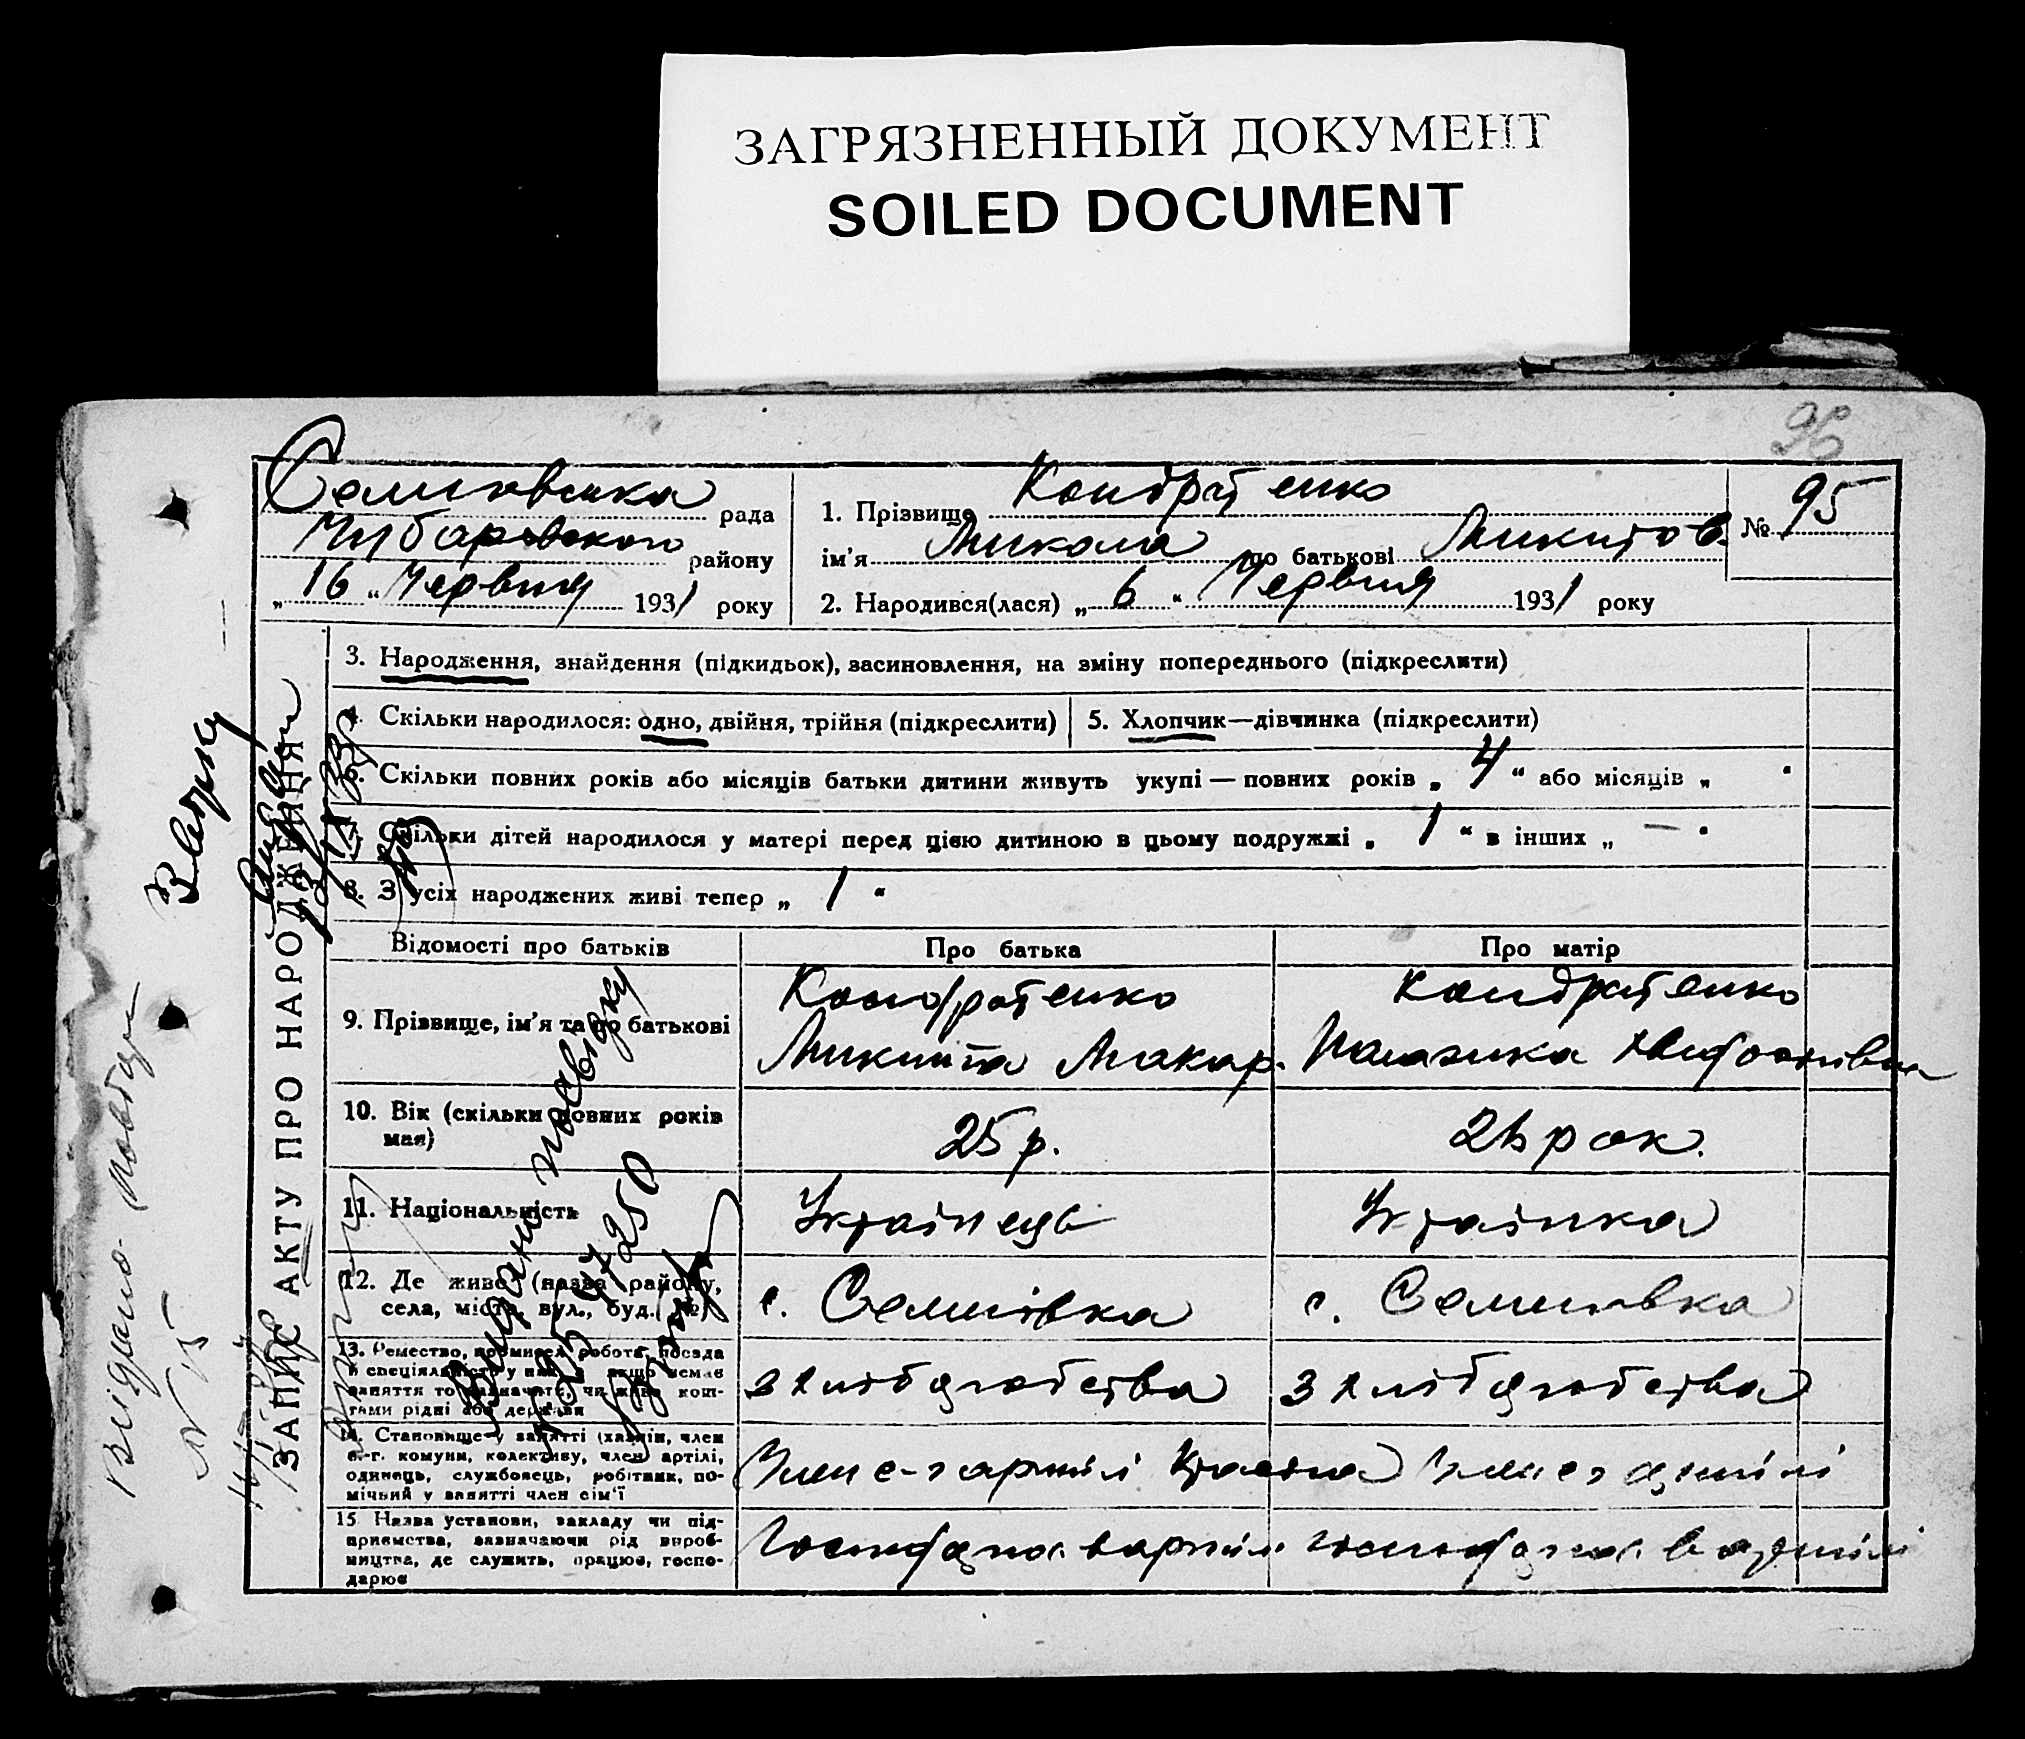 ЗАГРЯЗНЕННЫЙ ДОКУМЕНТ
SOILED DOCUMENT
96
Семенівська рада
Чубарівського району
„16“ Червня 1931 року
1. Прізвище Кондратенко
ім'я Микола по батькові Микитов.
№ 95
2. Народився(лася) „6“ Червня 1931 року
ЗАПИС АКТУ ПРО НАРОДЖЕННЯ
3. Народження, знайдення (підкидьок), засиновлення, на зміну попереднього (підкреслити)
4. Скільки народилося: одно, двійня, трійня (підкреслити)
5. Хлопчик—дівчинка (підкреслити)
6. Скільки повних років або місяців батьки дитини живуть укупі — повних років „4“ або місяців „ “
7. Скільки дітей народилося у матері перед цією дитиною в цьому подружжі „1“ в інших „—“
8. З усіх народжених живі тепер „1“
Відомості про батьків
Про батька
Про матір
9. Прізвище, ім'я та по батькові
Кондратенко
Микита Макар.
Кондратенко
10. Вік (скільки повних років має)
25 р.
рок.
11. Національність
Українець
Українка
12. Де живе (назва району, села, міста, вул., буд. №)
с. Семенівка
с. Семенівка
13. Ремество, промисел, робота, посада й спеціяльність у них, а якщо немає заняття то зазначити, чи живе коштами рідні або держави
з хлібодобства
з хлібодобства
14. Становище у занятті (хазяїн, член с.-г. комуни, колективу, член артілі, одинець, службовець, робітник, помічний у занятті член сім'ї
Член с-г артілі
Член с г артілі
15. Назва установи, закладу чи підприємства, зазначаючи рід виробництва, де служить, працює, господарює
в артілі
в артілі
Видано посвідку